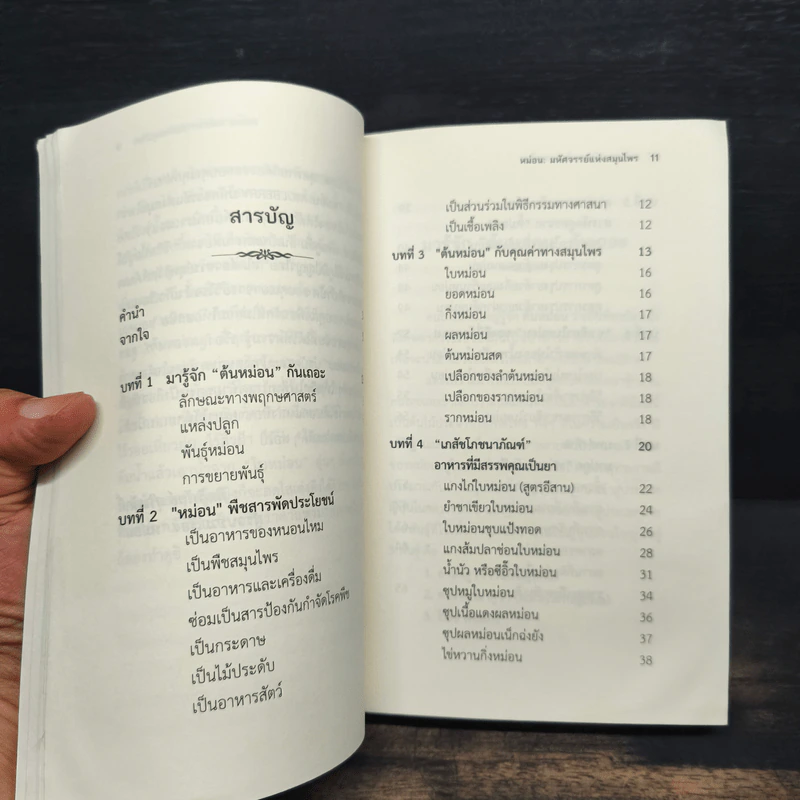 สารบัญ
คำนำ
จากใจ
บทที่ 1 มารู้จัก "ต้นหม่อน" กันเถอะ
ลักษณะทางพฤกษศาสตร์
แหล่งปลูก
พันธุ์หม่อน
การขยายพันธุ์
บทที่ 2 "หม่อน" พืชสารพัดประโยชน์
เป็นอาหารของหนอนไหม
เป็นพืชสมุนไพร
เป็นอาหารและเครื่องดื่ม
ซ่อมเป็นสารป้องกันกำจัดโรคพืช
เป็นกระดาษ
เป็นไม้ประดับ
เป็นอาหารสัตว์
หม่อน: มหัศจรรย์แห่งสมุนไพร 11
เป็นส่วนร่วมในพิธีกรรมทางศาสนา 12
เป็นเชื้อเพลิง 12
บทที่ 3 "ต้นหม่อน" กับคุณค่าทางสมุนไพร 13
ใบหม่อน 16
ยอดหม่อน 16
กิ่งหม่อน 17
ผลหม่อน 17
ต้นหม่อนสด 17
เปลือกของลำต้นหม่อน 18
เปลือกของรากหม่อน 18
รากหม่อน 18
บทที่ 4 "เภสัชโภชนาภัณฑ์" 20
อาหารที่มีสรรพคุณเป็นยา
แกงไก่ใบหม่อน (สูตรอีสาน) 22
ยำขาเขียวใบหม่อน 24
ใบหม่อนชุบแป้งทอด 26
แกงส้มปลาช่อนใบหม่อน 28
น้ำนัว หรือซีอิ๊วใบหม่อน 31
ซุปหมูใบหม่อน 34
ซุปเนื้อแดงผลหม่อน 36
ซุปผลหม่อนเน็กฉ่งยัง 37
ไข่หวานกิ่งหม่อน 38